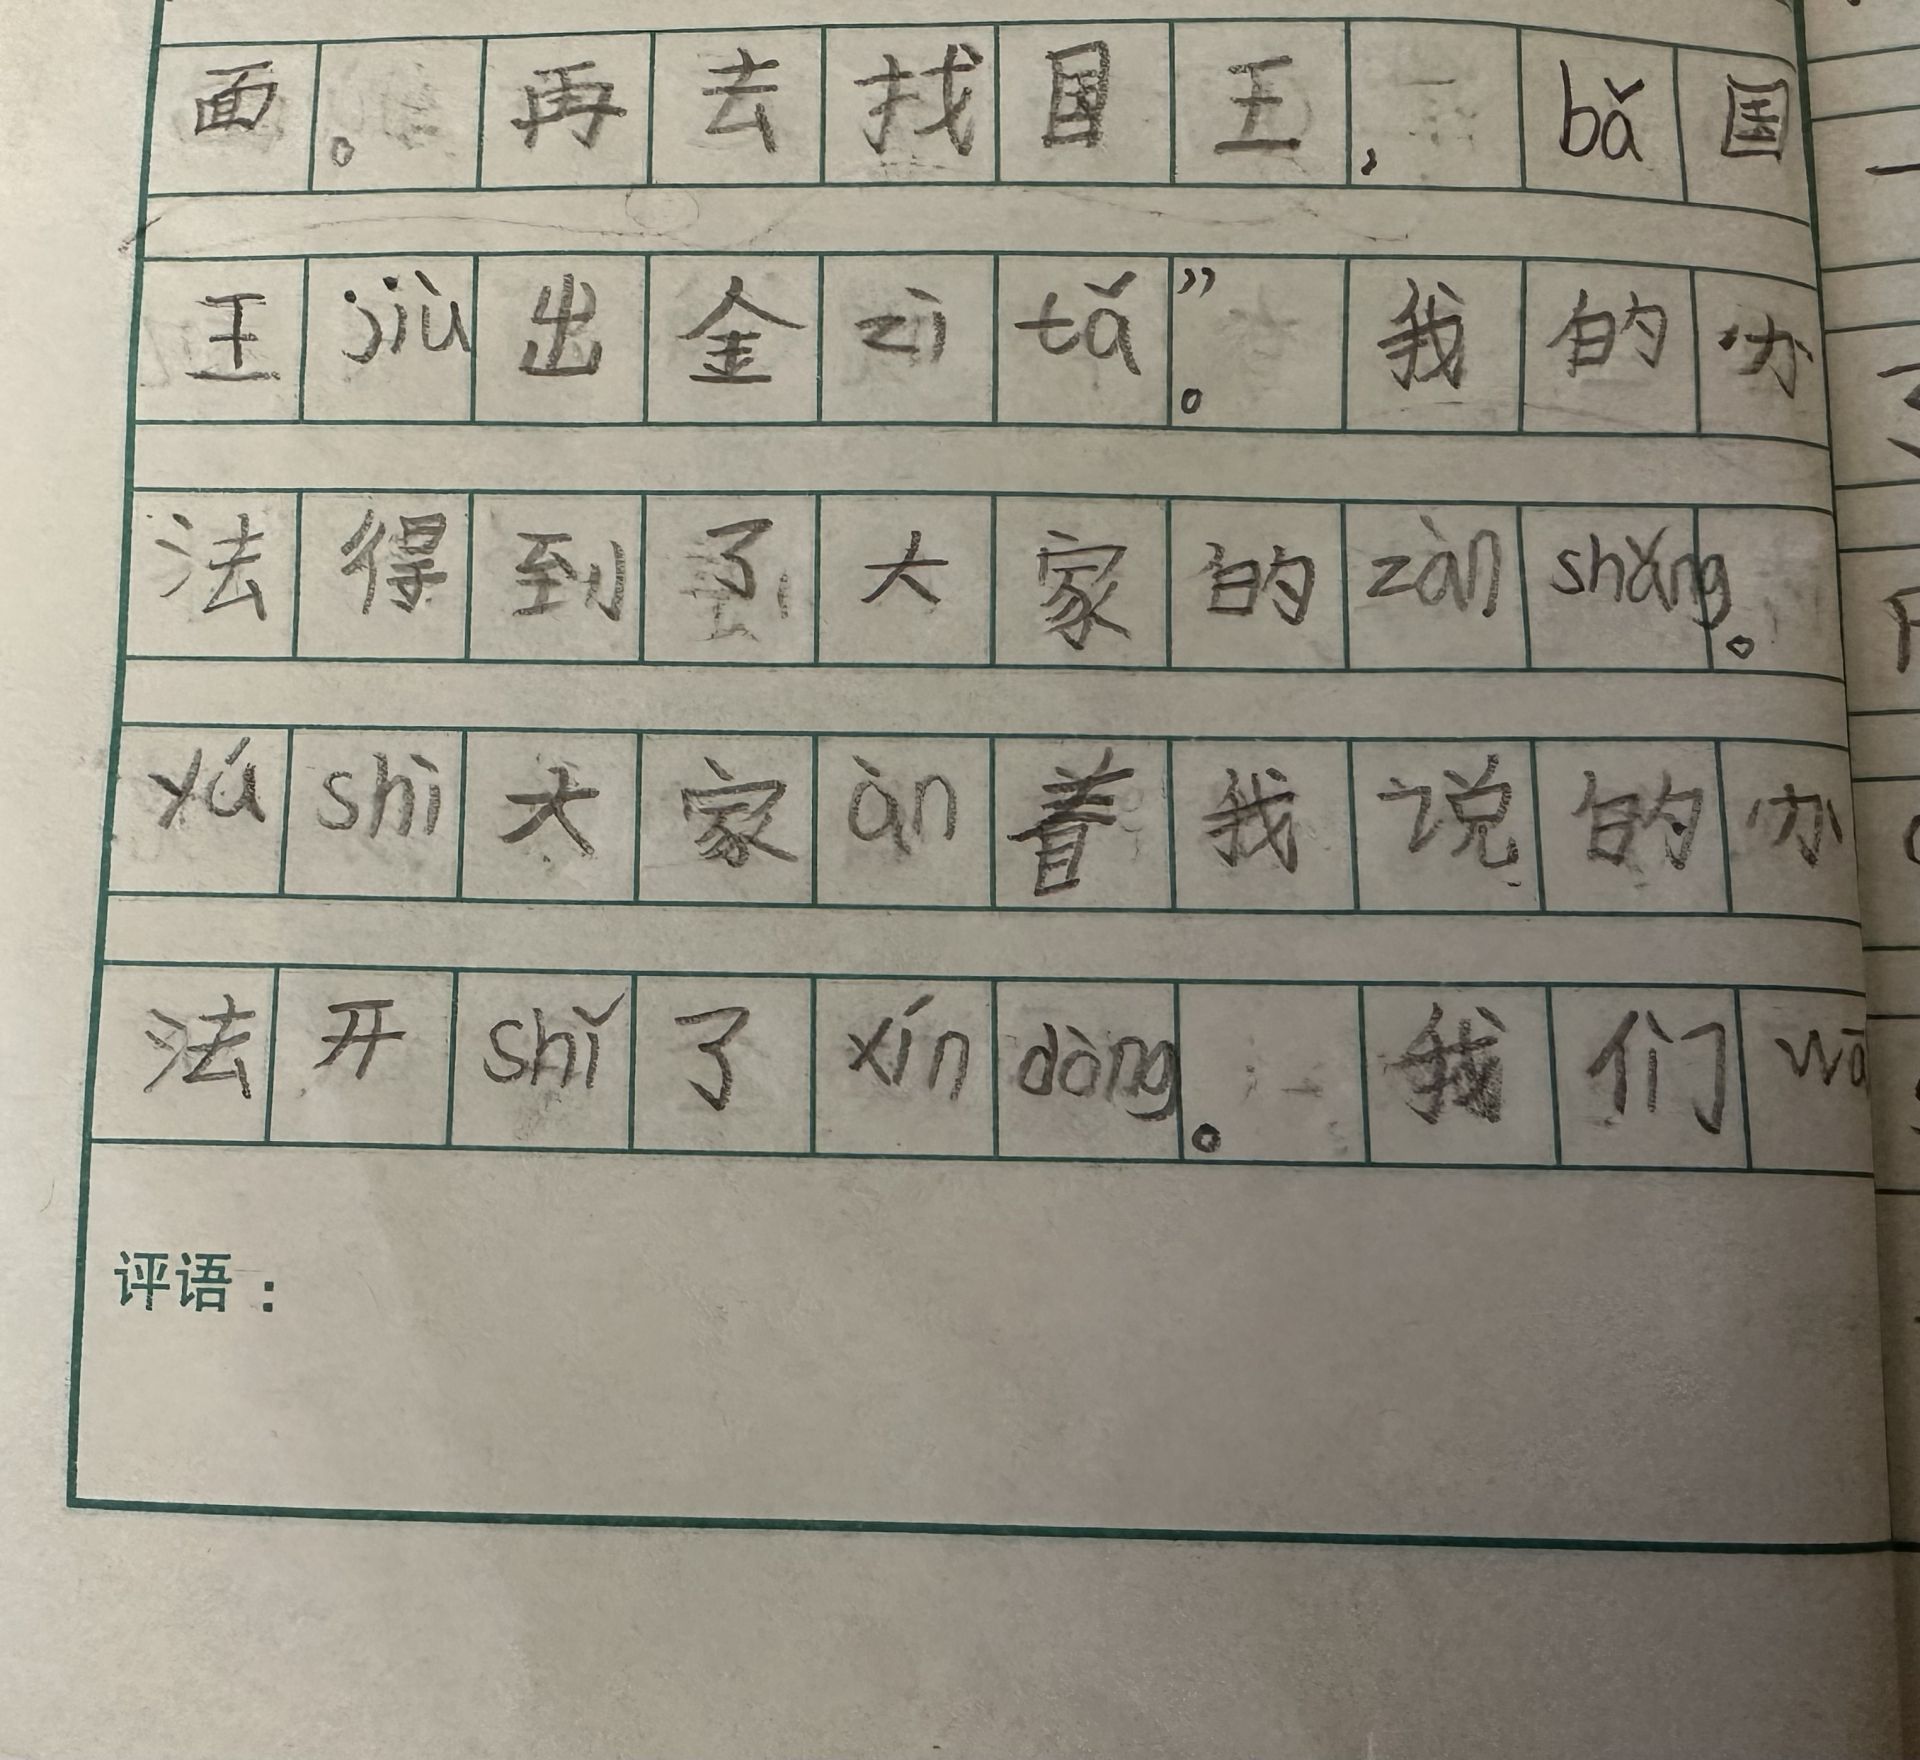 面。再去找国王，bǎ国
王jiù出金zìtǎ”。我的办
法得到了大家的zànshǎng。
yúshì大家àn着我说的办
法开shǐ了xíndòng。我们
评语：